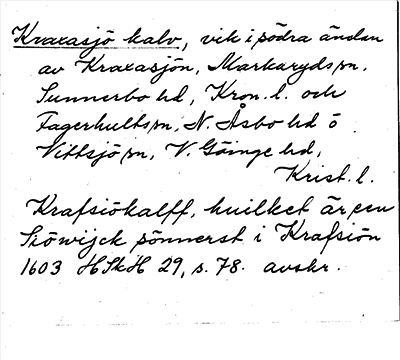 Kraxasjö kalv, vik i södra ändan
av Kraxasjön, Markaryds sn,
Sunnerbo hd, Kron. l. och
Fagerhults sn, N. Åsbo hd o
Vittsjö sn, V. Göinge hd,
Krist. l.
Krafsiökalff, huilket är een
Siöwijck sönnerst i Krafsiön
1603 HSkH 29, s. 78. avskr.